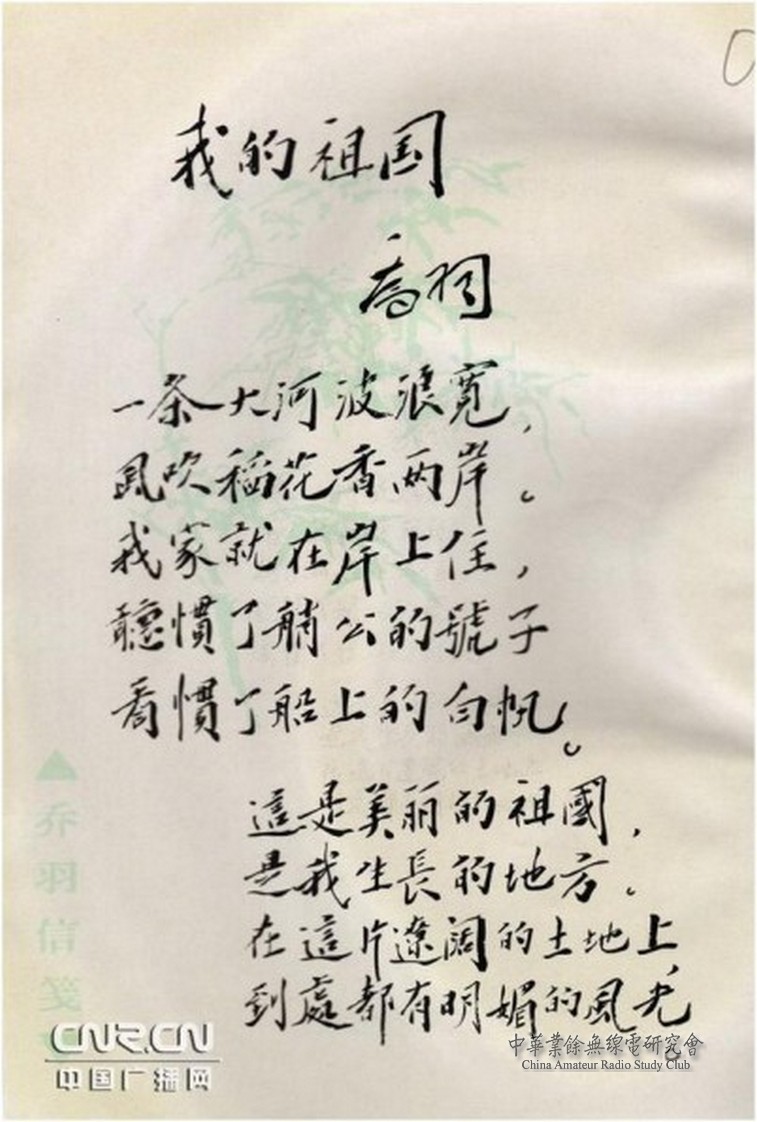 我的祖国
乔羽
一条大河波浪寬,
風吹稻花香两岸。
我家就在岸上住,
聽慣了艄公的號子
看慣了船上的白帆。
這是美丽的祖國,
是我生長的地方。
在這片遼阔的土地上,
到處都有明媚的風光。
乔羽信笺
CNR.CN
中国广播网
中華業餘無線電研究會
China Amateur Radio Study Club